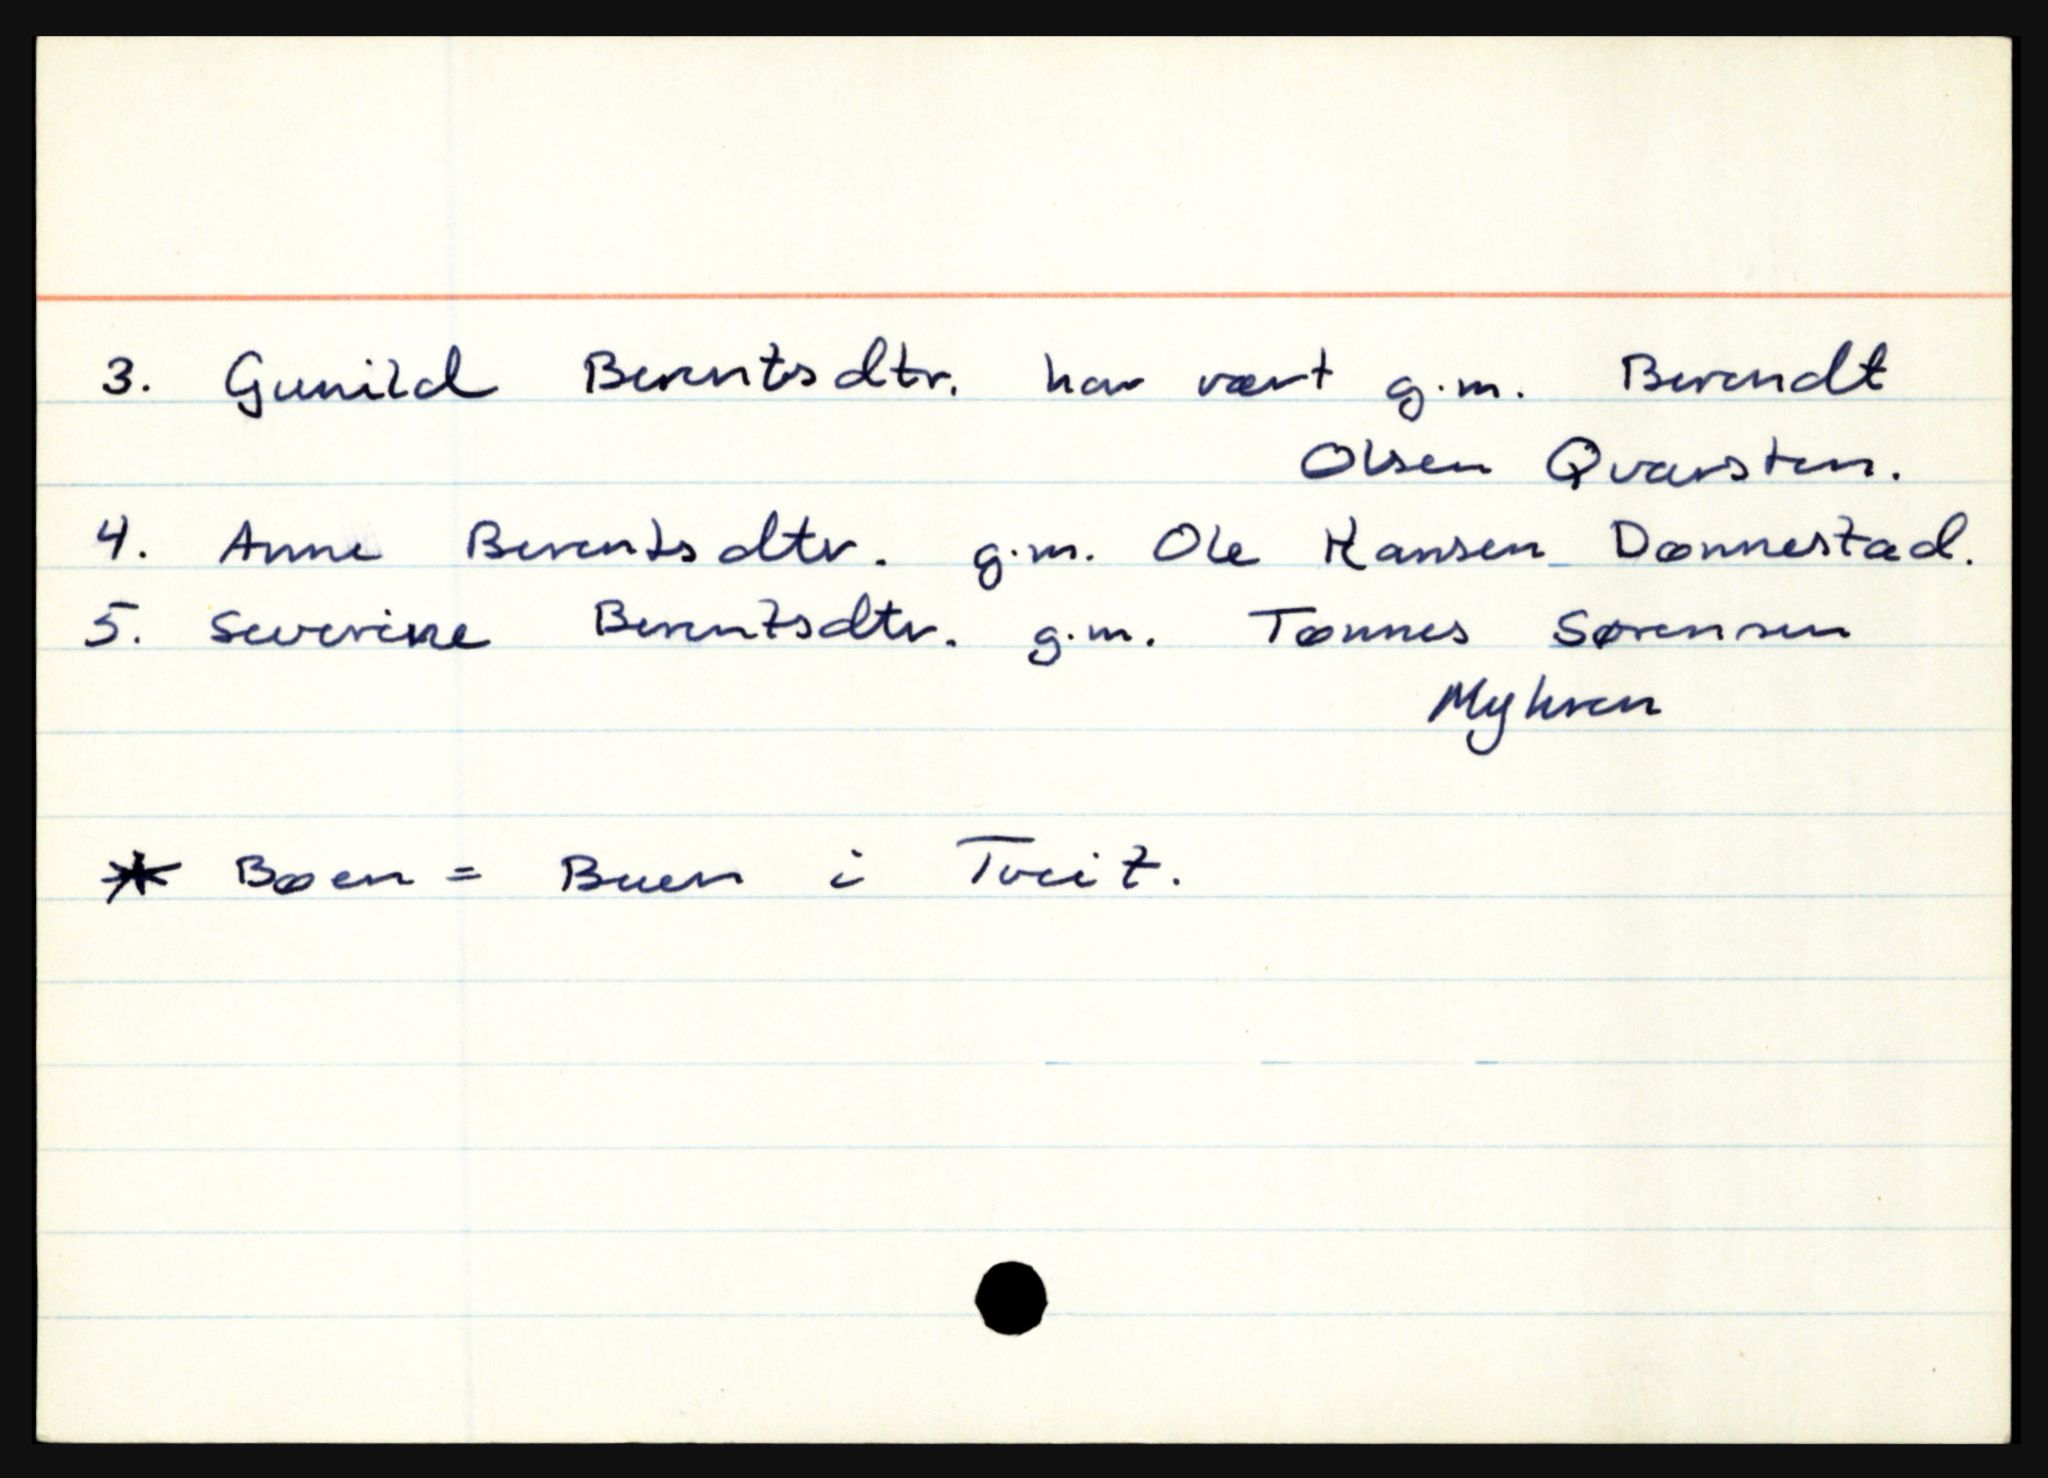 3. Gunild Berentsdtr. har vært g.m. Berendt
Olsen Qvarsten.
4. Anne Berentsdtr. g.m. Ole Hansen Dønnestad.
5. Severine Berentsdtr. g.m. Tønnes Sørensen
Myhren
* Bøen = Buen i Tveit.